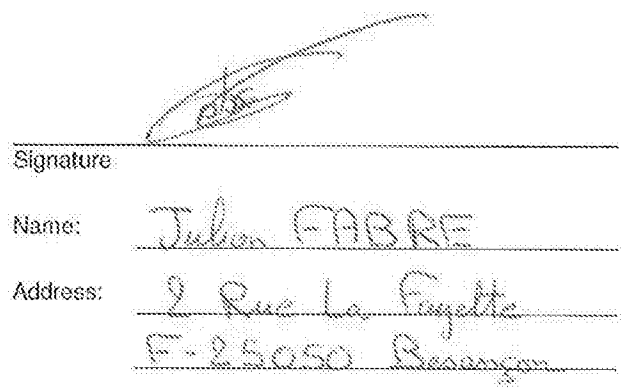 Signature
Name: Julien FABRE
Address: 2 Rue La Fayette
F-25050 Besançon